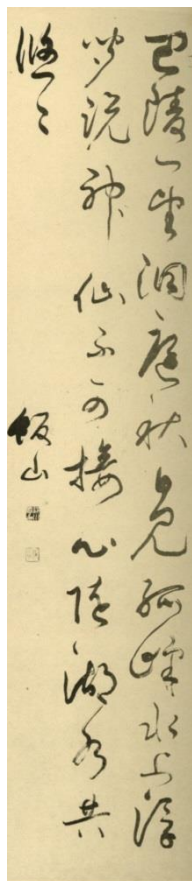 巴陵一望洞庭秋日見孤峰水上浮
聞説神仙不可接心随湖水共
悠々
飯山